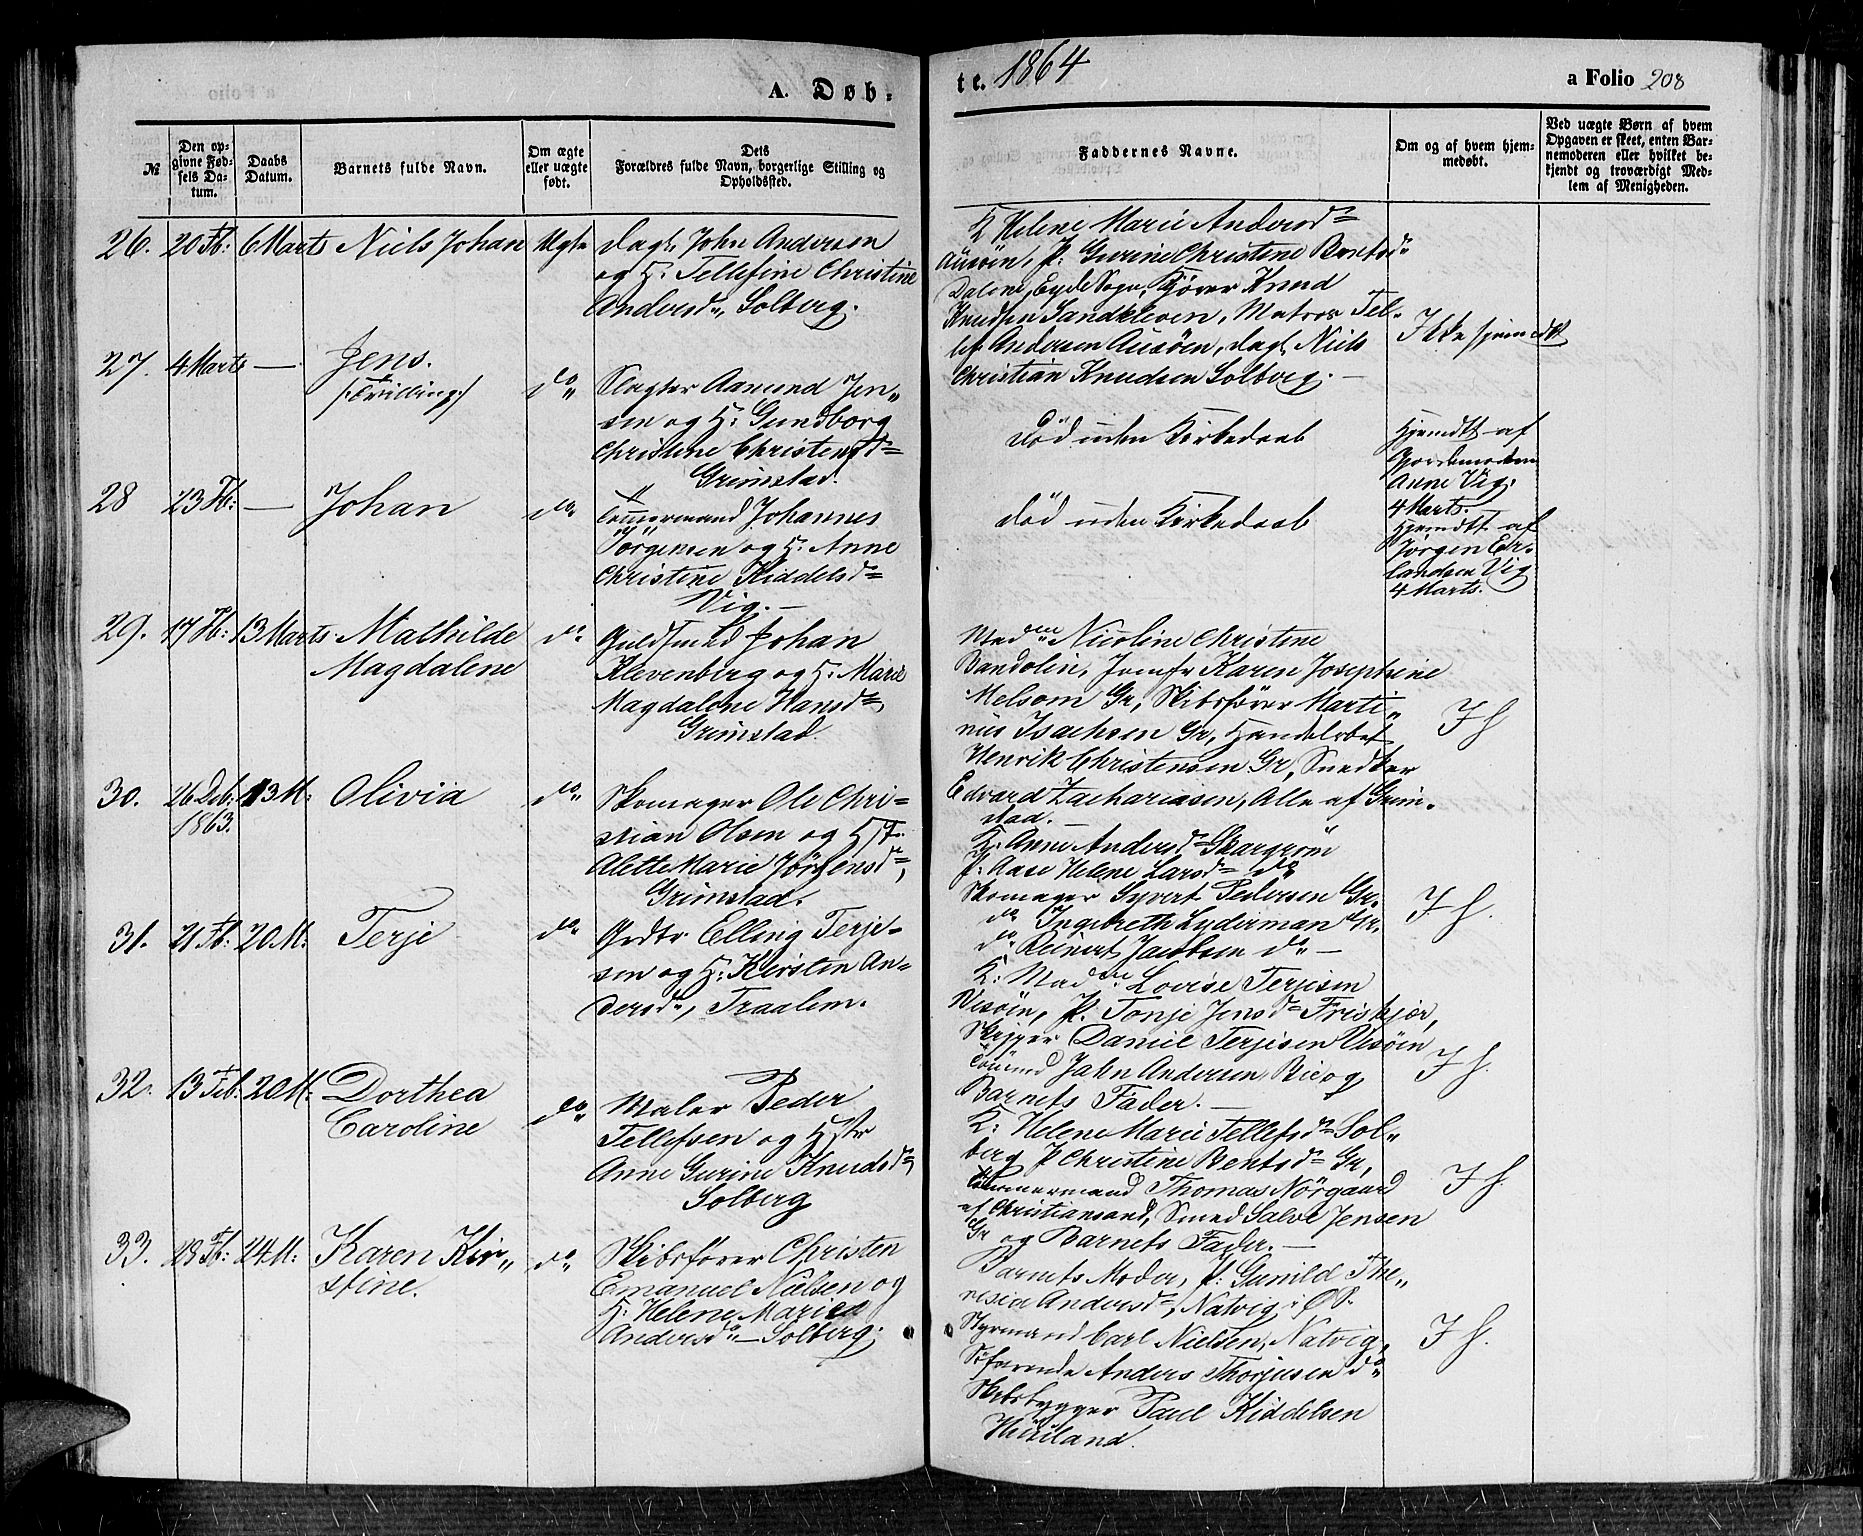 A. Døb-
te. 1864
a Folio 208
№
Den op-
givne Fød-
sels Da-
tum.
Daabs
Datum.
Barnets fulde Navn.
Om ægte
eller uægte
født.
Dets
Forældres fulde Navn, borgerlige Stilling og
Opholdssted.
Faddernes Navne.
Om og af hvem hjem-
medøbt.
Ved uægte Børn af hvem
Opgaven er skeet, enten Bar-
nemoderen eller hvilket be-
kjendt og troværdigt Med-
lem af Menigheden.
26. 20 Fb: 6 Marts Niels Johan Ægte
Dagl. John Andersen
og H. Tellefine Christine
Andersd., Solberg.
K Helene Marie Andersd
Auesøen, P. Gurine Christine Bentsd
Dalene, Eyde Sogn, Kjører Knud
Knudsen Sandkleven, Matros Tel-
lef Andersen Auesøen, Dagl. Niels
Christian Knudsen Solberg. —
Ikke hjemmedøbt
27. 4 Marts — Jens.
(:Trilling:)
do
Slagter Aamund Jen-
sen og H. Gundborg
Christine Christensd
Grimstad.
død uden Kirkedaab
Hjemdbt af
Gjordemoderen
Anne Vig.
4 Marts.
28 23 Fb: — Johan do
Tømmermand Johannes
Jørgensen og H. Anne
Christine Kiddelsd
Vig. —
død uden Kirkedaab
Hjemdbt af
Jørgen Er-
landsen Vig
4 Marts.
29. 17 Fb: 13 Marts. Mathilde
Magdalene
do
Guldsmed Johan
Klevenberg og H. Marie
Magdalene Hansd
Grimstad.
Madme Nicoline Christine
Bandolin, Jomfr Karen Josephine
Melsom Gr, Skibsfører Marti-
nus Isachsen Gr, Handelsbet
Henrik Christensen Gr, Snedker
Edvard Zachariasen, Alle af Grim-
stad. —
I H
30. 26 Deb: 13 M. Olivia do
1863.
Skomager Ole Chri-
stian Olsen og Hst.
Alette Marie Jørgensd,
Grimstad.
K. Anne Andersd Skargrøm
P. Aase Helene Larsd do
Skomager Syvert Pedersen Gr.
do Ingebreth Lyderman Gr.
do Reinert Jacobsen do —
I H.
31. 21 Fb: 20 M. Terje do
Grdbr. Elling Terje-
sen og H. Kirsten An-
dersd, Traalem.
K: Madme Lovise Terjesen
Vesøen, P. Tonje Jensd Friskjær,
Skipper Daniel Terjesen Vesøen
Tømmd Jahn Andersen Bie og
Barnets Fader. —
I H.
32. 13 Feb. 20 M. Dorthea
Caroline
do
Maler Peder
Tellefsen og Hstr
Anne Gurine Knudsd,
Solberg
K. Helene Marie Tellefsd Sol-
berg P Christine Bentsd Gr,
Tømmermand Thomas Nörgaard
af Christiansand, Smed Salve Jensen
Gr og Barnets Fader. —
I H.
33. 28 Fb: 24 M. Karen Kir-
stine.
do
Skibsfører Christen
Emanuel Nielsen og
H. Helene Marie
Andersd — Solberg.
Barnets Moder, P. Gunild The-
resia Andersd, Natvig i Ø P.
Styrmand Carl Nielsen, Natvig,
Søfarende Anders Thorjusen do
Skibsbygger Paul Kiddelsen
Hauland.
I H.